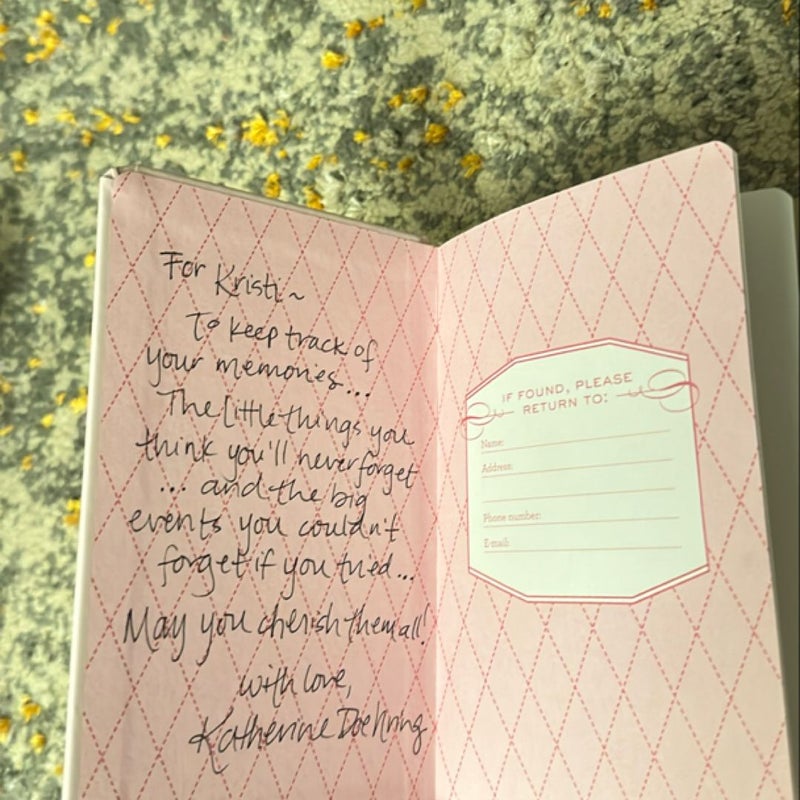 For Kristi ~
To keep track of
your memories...
The little things you
think you'll never forget
... and the big
events you couldn't
forget if you tried...
May you cherish them all!
with love,
Katherine Doehring
IF FOUND, PLEASE
RETURN TO:
Name:
Address:
Phone number:
E-mail: